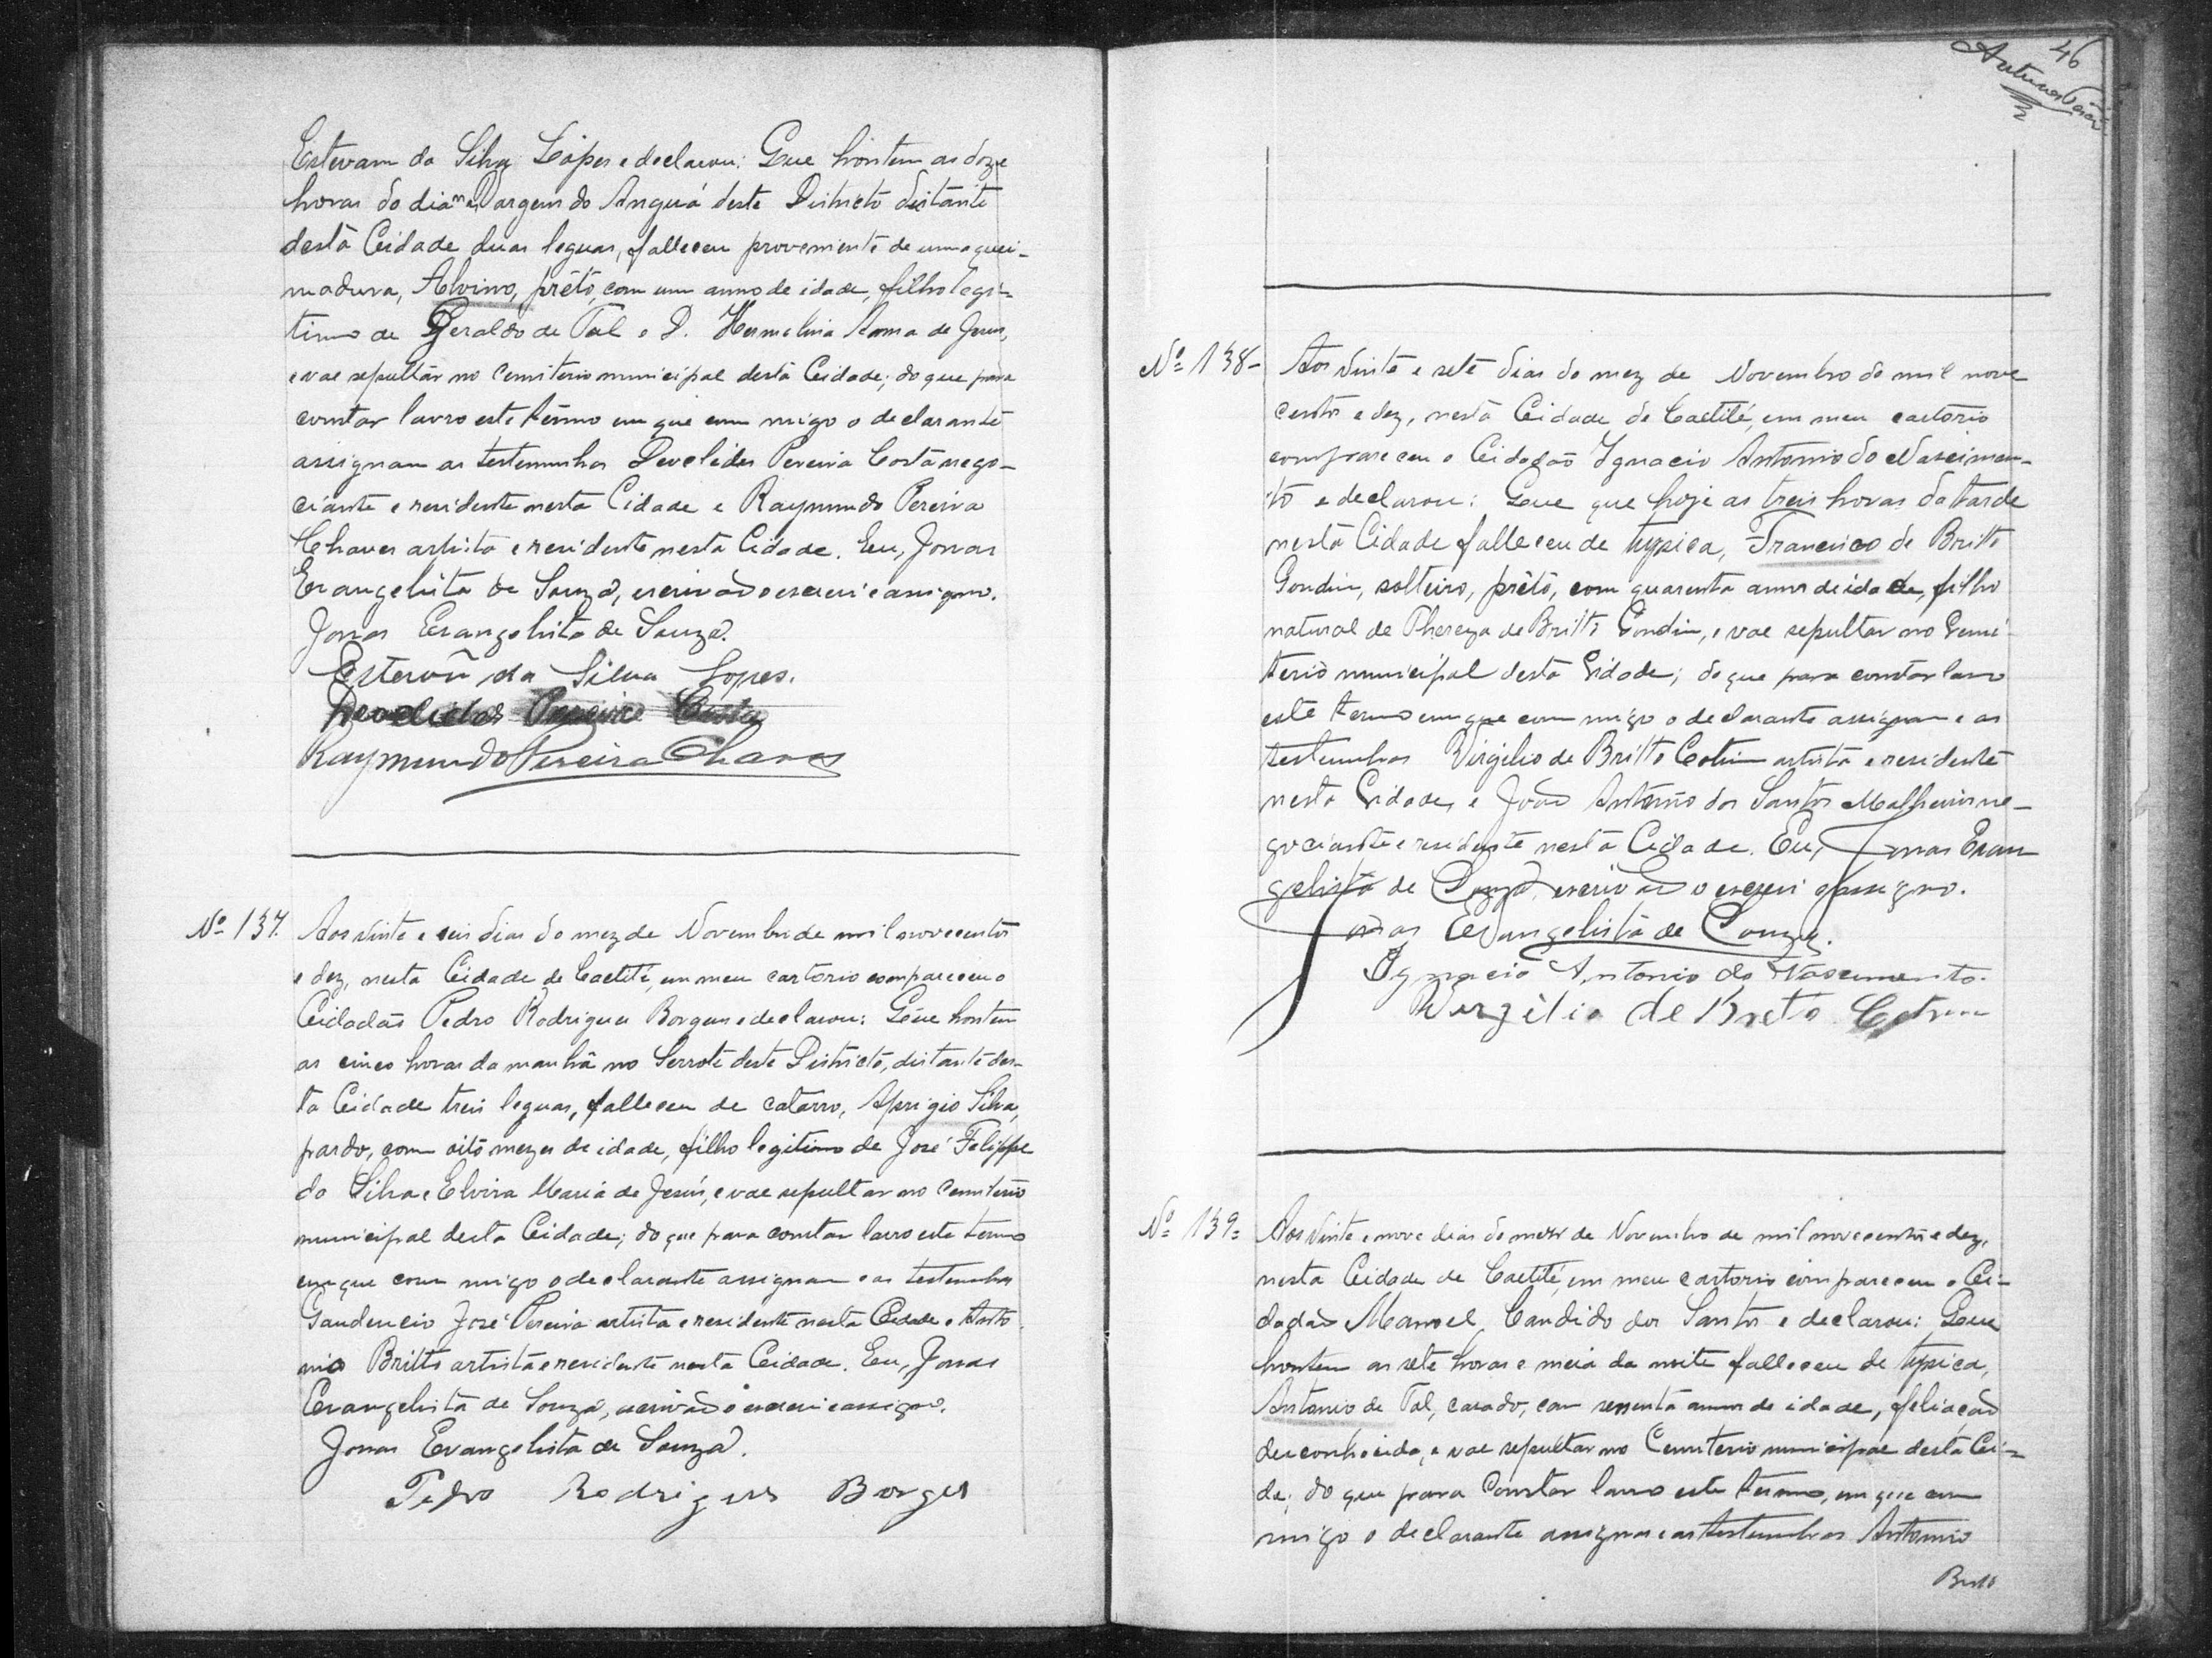 Estevam da Silva Lopes e declarou: Que hontem as doze
horas do dia na Vargem do Anguá deste Districto distante
desta Cidade duas leguas, falleceu proveniente de uma quei-
madura, Alvino, prêto, com um anno de idade, filho legi-
timo de Geraldo de Tal e D. Hermelina Anna de Jesus,
e vae sepultar no Cemiterio municipal desta Cidade; do que para
constar lavro este têrmo em que com migo o declarante
assignam as testemunhas Deoclides Pereira Costa nego-
ciante e residente nesta Cidade e Raymundo Pereira
Chaves artista e residente nesta Cidade. Eu, Jonas
Evangelista de Souza, escrivão o escrevi e assigno.
Jonas Evangelista de Souza.
Estevão da Silva Lopes.
Deoclides Pereira Costa
Raymundo Pereira Chaves
Nº 137. Aos vinte e seis dias do mez de Novembro de mil novecentos
e dez, nesta Cidade de Caetité, em meu cartorio compareceu o
Cidadão Pedro Rodrigues Borges e declarou: Que hontem
as cinco horas da manhã no Serrote deste Districto, distante des-
ta Cidade treis leguas, falleceu de catarro, Aprigio Silva,
pardo, com oito mezes de idade, filho legitimo de José Felippe
da Silva e Elvira Maria de Jesus, e vae sepultar no Cemiterio
municipal desta Cidade; do que para constar lavro este termo
em que com migo o declarante assignam e as testemunhas
Gaudencio José Pereira artista e residente nesta Cidade e Anto
nio Britto artista e residente nesta Cidade. Eu, Jonas
Evangelista de Souza, escrivão o escrevi e assigno.
Jonas Evangelista de Souza.
Pedro Rodrigues Borges
46
Nº 138- Aos vinte e sete dias do mez de Novembro de mil nove
centos e dez, nesta Cidade de Caetité, em meu cartorio
compareceu o Cidadão Ygnacio Antonio do Nascimen-
to e declarou: Que que hoje as treis horas da tarde
nesta Cidade falleceu de typica, Francisco de Britto
Gondim, solteiro, prêto, com quarenta annos de idade, filho
natural de Thereza de Britto Gondim, e vae sepultar no Cemi-
terio municipal desta Cidade; do que para constar lavro
este termo em que com migo o declarante assignam e as
testemunhas Virgilio de Britto Cotrim artista e residente
nesta Cidade, e João Antonio dos Santos Malheiros ne-
gociante e residente nesta Cidade. Eu, Jonas Evan
gelista de Souza, escrivão o escrevi e assigno.
Jonas Evangelista de Souza.
Ygnacio Antonio do Nascimento.
Virgilio de Brito Cotrim
Nº 139= Aos vinte e nove dias do mez de Novembro de mil novecentos e dez,
nesta Cidade de Caetité, em meu cartorio compareceu o Ci-
dadão Manoel Candido dos Santos e declarou: Que
hontem as sete horas e meia da noite falleceu de typica,
Antonio de Tal, casado, com sessenta annos de idade, filiação
desconhecida, e vae sepultar no Cemiterio municipal desta Ci-
da; do que para constar lavro este termo, em que com
migo o declarante assignam e as testemunhas Antonio